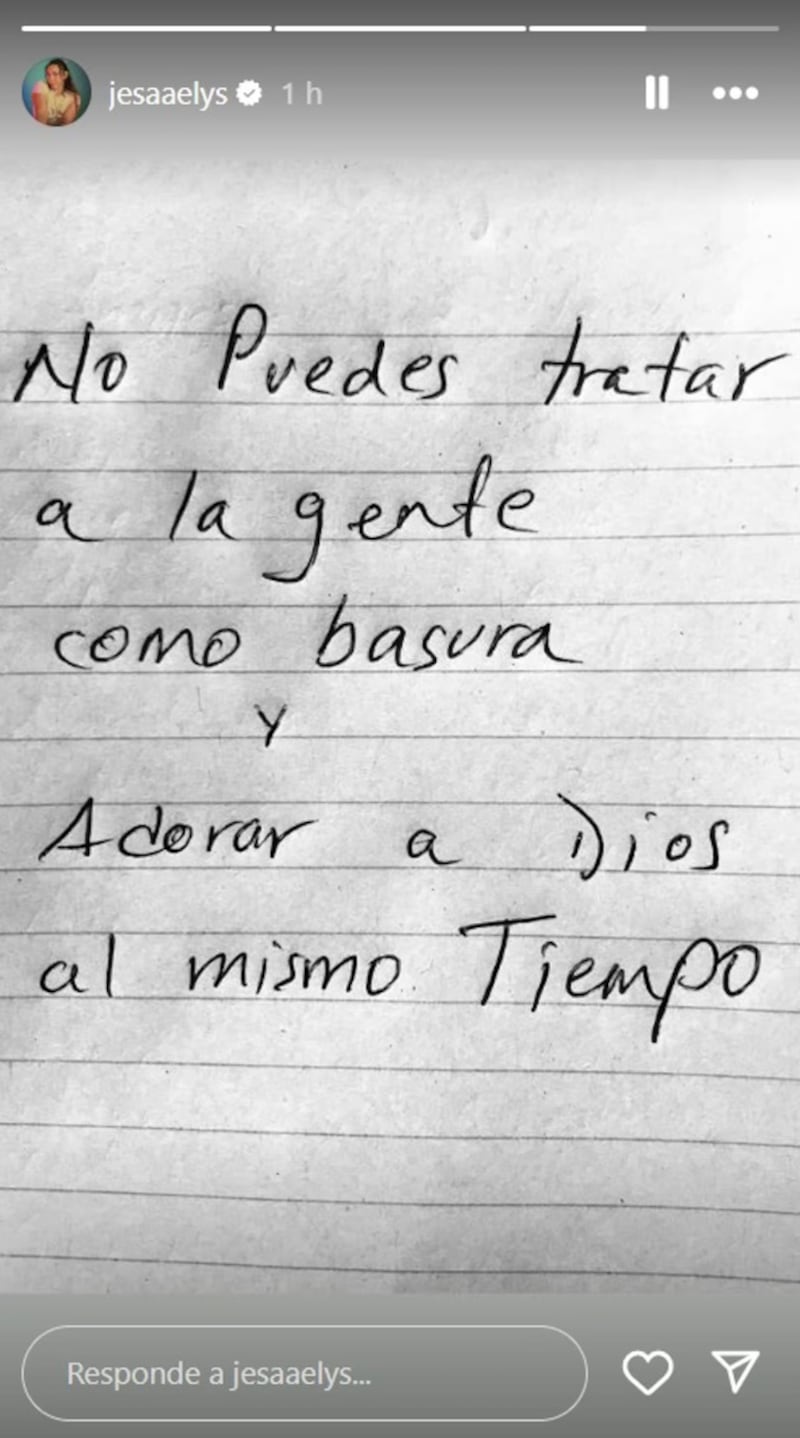 jesaaelys 1 h
No Puedes tratar
a la gente
como basura
y
Adorar a Dios
al mismo Tiempo
Responde a jesaaelys...